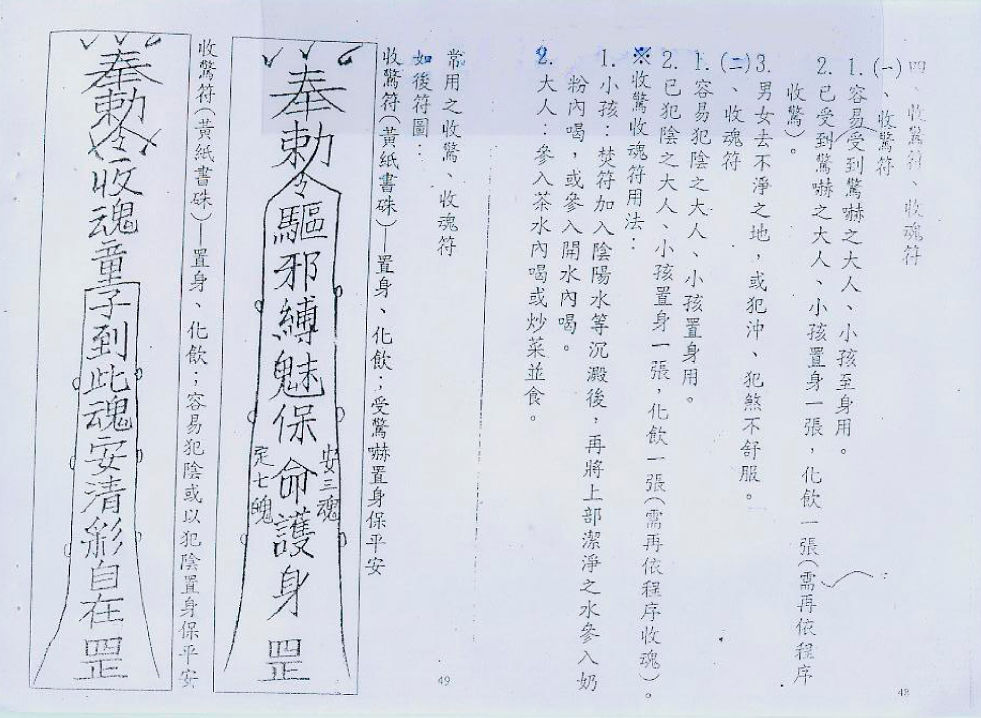 四、收驚符、收魂符
(一)、收驚符
1. 容易受到驚嚇之大人、小孩至身用。
2. 已受到驚嚇之大人、小孩置身一張，化飲一張(需再依程序
收驚)。
3. 男女去不淨之地，或犯沖、犯煞不舒服。
(二)、收魂符
1. 容易犯陰之大人、小孩置身用。
2. 已犯陰之大人、小孩置身一張，化飲一張(需再依程序收魂)。
※收驚收魂符用法：
1. 小孩：焚符加入陰陽水等沉澱後，再將上部潔淨之水參入奶
粉內喝，或參入開水內喝。
2. 大人：參入茶水內喝或炒菜並食。
48
常用之收驚、收魂符
如後符圖：
收驚符(黃紙書硃)—置身、化飲；受驚嚇置身保平安
奉勅令驅邪縛魅保命護身罡
安三魂
定七魄
收驚符(黃紙書硃)—置身、化飲；容易犯陰或以犯陰置身保平安
奉勅令收魂童子到此魂安清彩自在罡
49